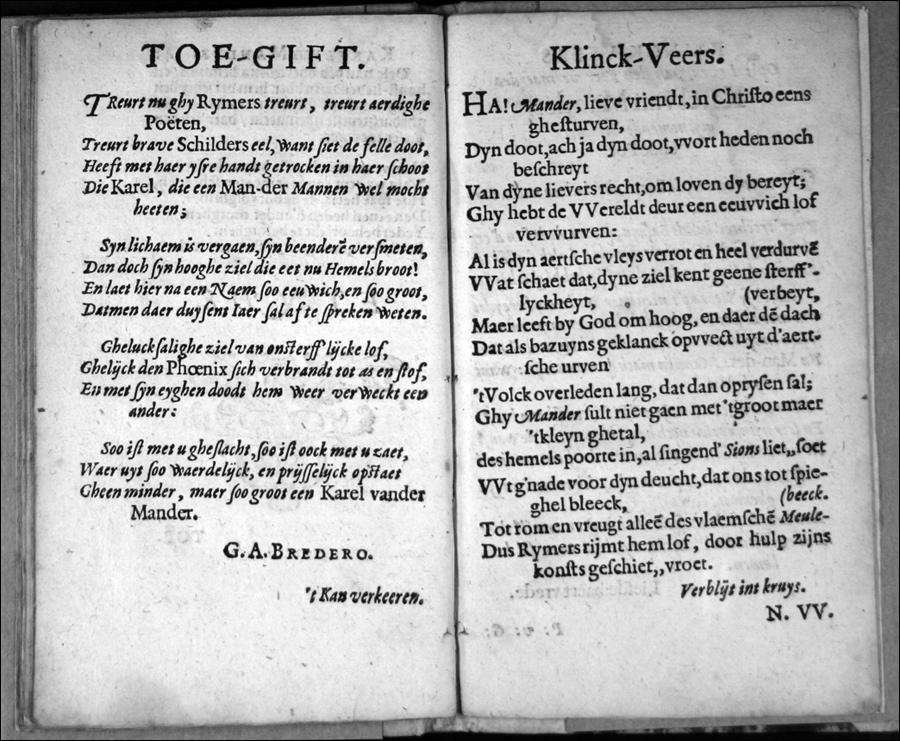 TOE-GIFT.
TReurt nu ghy Rymers treurt, treurt aerdighe
Poëten,
Treurt brave Schilders eel, want ſiet de felle doot,
Heeft met haer yſre handt getrocken in haer ſchoot
Die Karel, die een Man-der Mannen wel mocht
heeten;
Syn lichaem is vergaen, ſyn beenderē verſmeten,
Dan doch ſyn hooghe ziel die eet nu Hemels broot!
En laet hier na een Naem soo eeuwich, en ſoo groot,
Datmen daer duyſent Iaer ſal af te ſpreken weten.
Gheluckſalighe ziel van onſterff'lijcke lof,
Ghelijck den Phœnix ſich verbrandt tot as en ſtof,
En met ſyn eyghen doodt hem weer verweckt een
ander:
Soo iſt met u gheſlacht, ſoo iſt oock met u zaet,
Waer uyt ſoo waerdelijck, en prijſſelijck opſtaet
Gheen minder, maer ſoo groot een Karel vander
Mander.
G. A. BREDERO.
't Kan verkeeren.
Klinck-Veers.
HA! Mander, lieve vriendt, in Chriſto eens
gheſturven,
Dyn doot, ach ja dyn doot, vvort heden noch
beſchreyt
Van dyne lievers recht, om loven dy bereyt;
Ghy hebt de VVereldt deur een eeuvvich lof
vervvurven:
Al is dyn aertſche vleys verrot en heel verdurvē
VVat ſchaet dat, dyne ziel kent geene ſterff'-
lyckheyt, (verbeyt,
Maer leeft by God om hoog, en daer dē dach
Dat als bazuyns geklanck opvvect uyt d'aert-
ſche urven
'tVolck overleden lang, dat dan opryſen ſal;
Ghy Mander ſult niet gaen met 'tgroot maer
'tkleyn ghetal,
des hemels poorte in, al ſingend' Sions liet,,ſoet
VVt g'nade voor dyn deucht, dat ons tot ſpie-
ghel bleeck, (beeck.
Tot rom en vreugt alleē des vlaemſchē Meule-
Dus Rymers rijmt hem lof, door hulp zijns
konſts geſchiet,,vroet.
Verblijt int kruys.
N. VV.